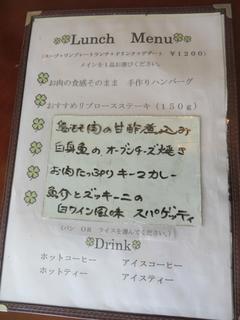 Lunch Menu
(スープ+ワンプレートランチ+ドリンク+デザート ￥1200)
メインを1品お選びください。
お肉の食感そのまま 手作りハンバーグ
おすすめリブロースステーキ(150g)
鶏モモ肉の甘酢煮込み
白身魚のオーブンチーズ焼き
お肉たっぷりキーマカレー
魚介とズッキーニの
白ワイン風味 スパゲッティ
(パン OR ライスを選んでください。)
Drink
ホットコーヒー アイスコーヒー
ホットティー アイスティー